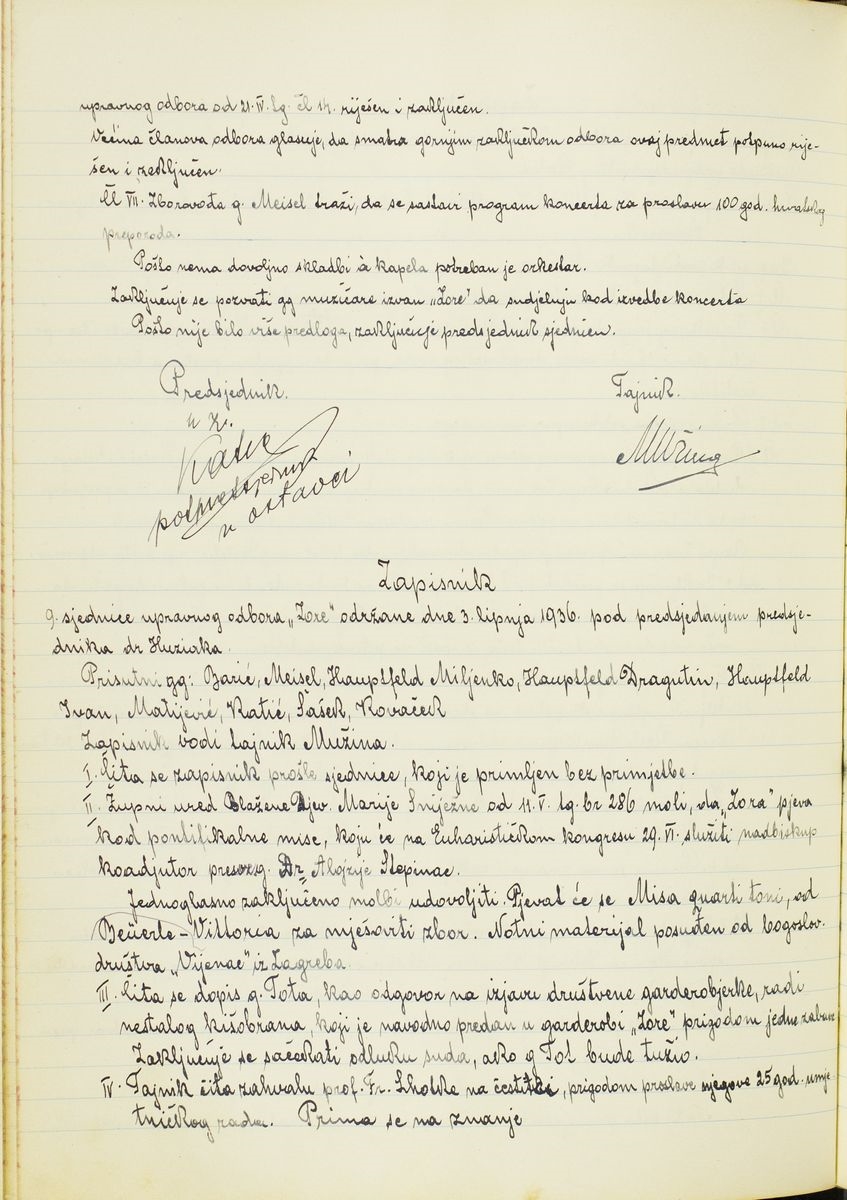 upravnog odbora od 21. IV. tg. čl 14. riješen i zaključen.
Većina članova odbora glasuje, da smatra gornjim zaključkom odbora ovaj predmet potpuno rije-
šen i zaključen.
Čl VII. Zborovođa g. Meisel traži, da se sastavi program koncerta za proslavu 100 god. hrvatskog
preporoda.
Pošto nema dovoljno skladbi à kapela potreban je orkestar.
Zaključuje se pozvati gg muzičare izvan „Zore" da sudjeluju kod izvedbe koncerta
Pošto nije bilo više predloga, zaključuje predsjednik sjednicu.
Predsjednik. Tajnik.
u z.
Katić
potpredsjednik
u ostavci
Zapisnik
9. sjednice upravnog odbora „Zore" održane dne 3. lipnja 1936. pod predsjedanjem predsje-
dnika dr Huziaka.
Prisutni gg: Barić, Meisel, Hauptfeld Miljenko, Hauptfeld Dragutin, Hauptfeld
Ivan, Matijević, Katić, Šašek, Kovaček
Zapisnik vodi tajnik Mužina.
I. Čita se zapisnik prošle sjednice, koji je primljen bez primjetbe.
II. Župni ured Blažene Djev. Marije Snježne od 11. V. tg. br 286 moli, da „Zora" pjeva
kod pontifikalne mise, koju će na Euharističkom kongresu 29. VI. služiti nadbiskup
koadjutor presv. g. Dr Alojzije Stepinac.
Jednoglasno zaključeno molbi udovoljiti. Pjevat će se Misa quarti toni, od
Beüerle - Vittorca za mješoviti zbor. Notni materijal posuđen od bogoslov.
društva „Vijenac" iz Zagreba.
III. Čita se dopis g. Tota, kao odgovor na izjavu društvene garderobjerke, radi
nestalog kišobrana, koji je navodno predan u garderobi „Zore" prigodom jedne zabave
Zaključuje se sačekati odluku suda, ako g Tot bude tužio.
IV. Tajnik čita zahvalu prof. Fr. Lhotke na čestitci, prigodom proslave njegove 25 god. umje
tničkog rada. Prima se na znanje